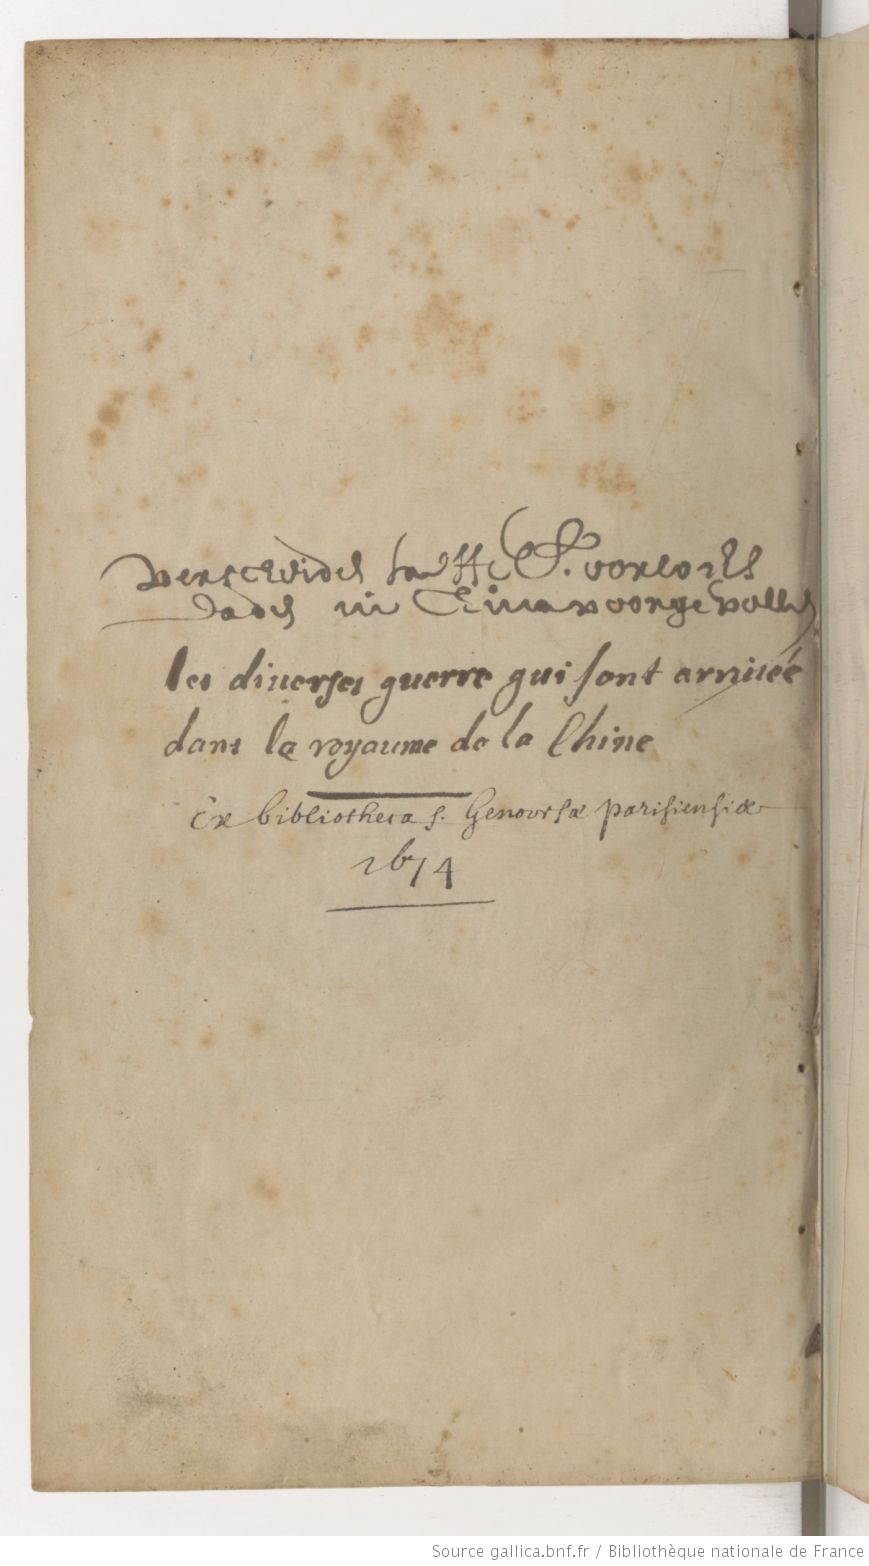 verscheiden
daden in China voorgevallen
les diuerses guerre qui sont arriueé
dans la royaume de la Chine
Ex bibliotheca s. Genouefæ parisiensis
1674
Source gallica.bnf.fr / Bibliothèque nationale de France